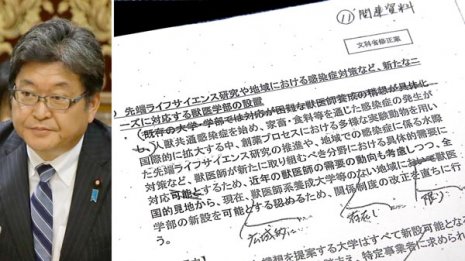 ⑪関連資料
文科省修正案
先端ライフサイエンス研究や地域における感染症対策など、新たなニ
ーズに対応する獣医学部の設置
(既存の大学・学部では対応が困難な獣医師養成の構想が具体化
し、)人獣共通感染症を始め、家畜・食料等を通じた感染症の発生が
国際的に拡大する中、創薬プロセスにおける多様な実験動物を用い
た先端ライフサイエンス研究の推進や、地域での感染症に係る水際
対策など、獣医師が新たに取り組むべき分野における具体的需要に
対応可能とするため、近年の獣医師の需要の動向も考慮しつつ、全
国的見地から、現在、獣医師系養成大学等のない地域において獣医
学部の新設を可能とする認めるため、関係制度の改正を直ちに行
う。
広域的に
存在し
限り
構想を提案する大学はすべて新設可能とな
特定事業者に求められ